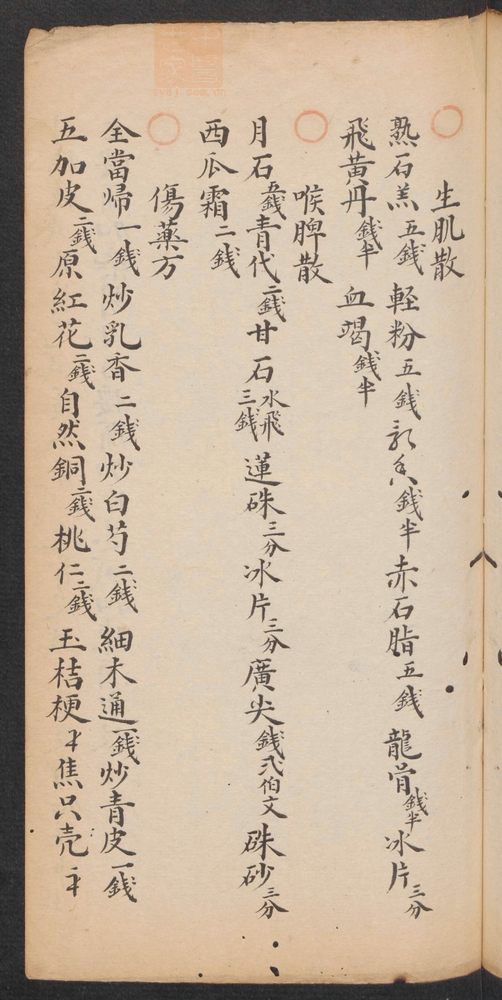 生肌散
熟石羔五錢 輕粉五錢 乳香錢半 赤石脂五錢 龍骨錢半 冰片三分
飛黃丹錢半 血竭錢半
喉脾散
月石五錢 青代二錢 甘石水飛三錢 蓮硃三分 冰片三分 廣尖錢弍伯文 硃砂三分
西瓜霜二錢
傷藥方
全當歸一錢 炒乳香二錢 炒白芍二錢 細木通一錢 炒青皮一錢
五加皮二錢 原紅花二錢 自然銅二錢 桃仁二錢 玉桔梗 焦只壳